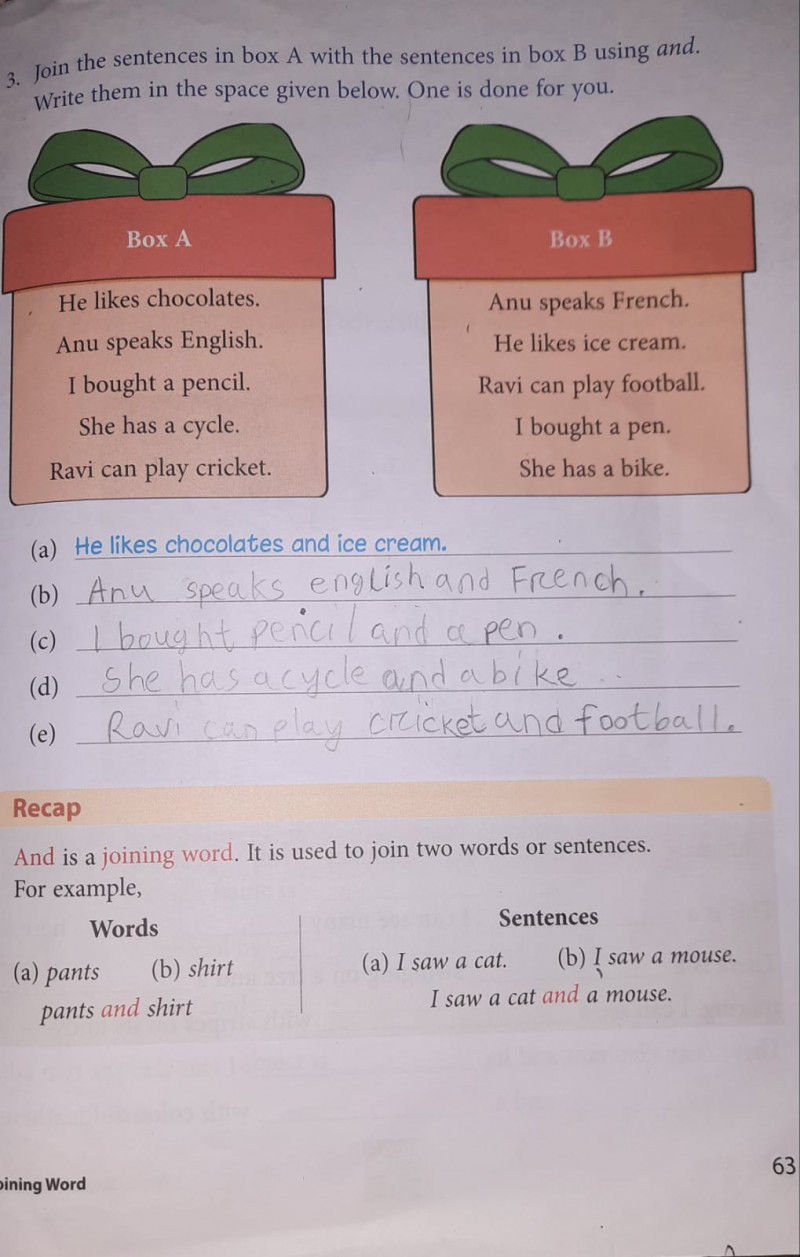 3. Join the sentences in box A with the sentences in box B using and.
Write them in the space given below. One is done for you.
Box A
He likes chocolates.
Anu speaks English.
I bought a pencil.
She has a cycle.
Ravi can play cricket.
Box B
Anu speaks French.
He likes ice cream.
Ravi can play football.
I bought a pen.
She has a bike.
(a) He likes chocolates and ice cream.
(b) Anu speaks english and French.
(c) I bought pencil and a pen.
(d) She has a cycle and a bike
(e) Ravi can play cricket and football.
Recap
And is a joining word. It is used to join two words or sentences.
For example,
Words
(a) pants (b) shirt
pants and shirt
Sentences
(a) I saw a cat. (b) I saw a mouse.
I saw a cat and a mouse.
63
oining Word